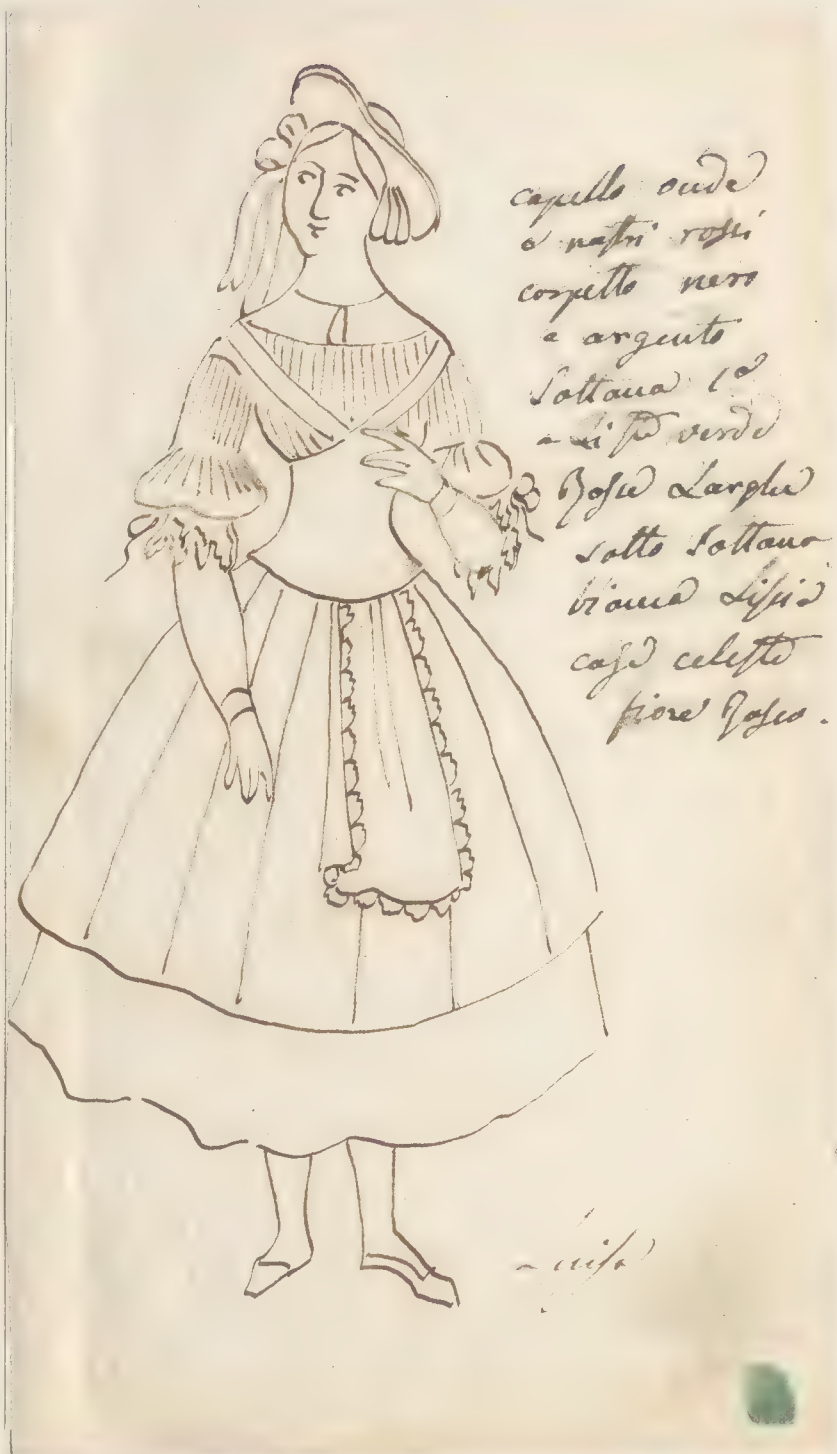 capello
e nastri rossi
corpetto nero
e argento
Sottana 1ª
verde
Rosse Larghe
sotto Sottana
bianca Liscia
celeste
fiore Rosso.
Luisa